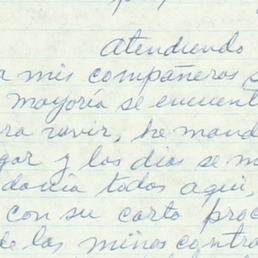 Atendiendo
a mis compañeros
mayoría se encuent
ra vivir, he mand
gar y los dias se m
todos aqui,
con su carta proc
de las minas contra